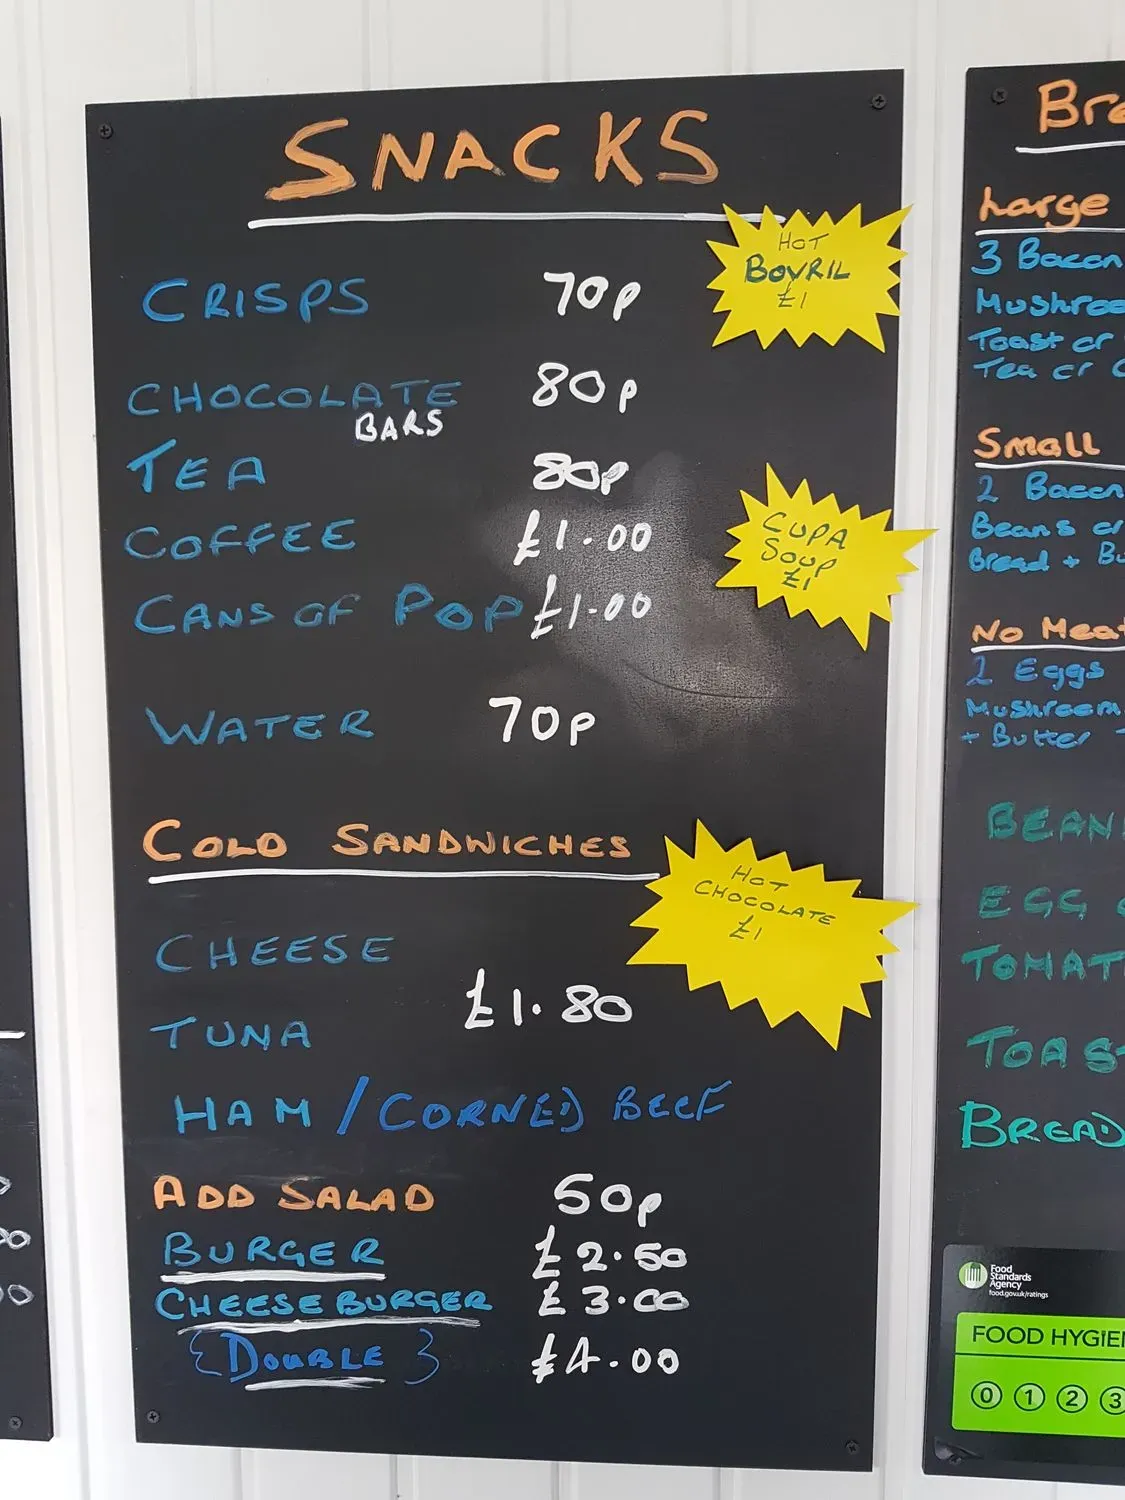 SNACKS
HOT
BOVRIL
£1
CRISPS 70p
CHOCOLATE 80p
BARS
TEA 80p
COFFEE £1.00
CANS OF POP £1.00
CUPA
SOUP
£1
WATER 70p
COLD SANDWICHES
HOT
CHOCOLATE
£1
CHEESE
£1.80
TUNA
HAM / CORNED BEEF
ADD SALAD 50p
BURGER £2.50
CHEESEBURGER £3.00
{DOUBLE} £4.00
Large
3 Bacon
Toast or
Tea or
Small
2 Bacon
Beans or
Bread +
2 Eggs
Mushroom
+ Butter
EGG
BREAD
Food
Standards
Agency
food.gov.uk/ratings
FOOD
0 1 2 3